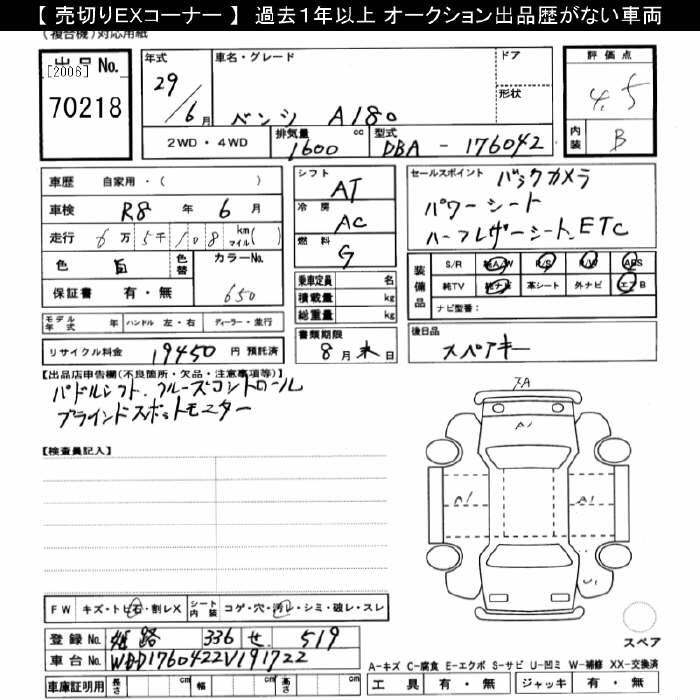 【 売切りEXコーナー 】 過去1年以上 オークション出品歴がない車両
(複合機)対応用紙
出品No.
[2006]
70218
年式
29/6月
車名・グレード
ベンシ A180
ドア
形状
評価点
4.5
内装
B
2WD・4WD
排気量
1600
cc
型式
DBA - 176042
車歴 自家用・( )
車検 R8 年 6 月
走行 6万5千108
km
マイル( )
色 白
色替
カラーNo.
650
保証書 有・無
シフト AT
冷房 AC
燃料 G
乗車定員 名
積載量 kg
総重量 kg
セールスポイント バックカメラ
パワーシート
ハーフレザーシート、ETC
装備品
S/R 純A/W P/S P/W ABS
純TV 純ナビ 革シート 外ナビ エアB
ナビ型番:
モデル年式 年 ハンドル 左・右 ディーラー・並行
リサイクル料金 19450 円 預託済
書類期限
8月末日
後日品
スペアキー
【出品店申告欄(不良箇所・欠品・注意事項等)】
パドルシフト、クルーズコントロール
ブラインドスポットモニター
【検査員記入】
A1
A1
A1
スペア
FW キズ・トビ石・割レX
シート内装
コゲ・穴・汚レ・シミ・破レ・スレ
登録No. 姫路 336 せ 519
車台No. WDD1760422V191722
車庫証明用 長さ cm 幅 cm 高さ cm
A-キズ C-腐食 E-エクボ S-サビ U-凹ミ W-補修 XX-交換済
工具 有・無 ジャッキ 有・無